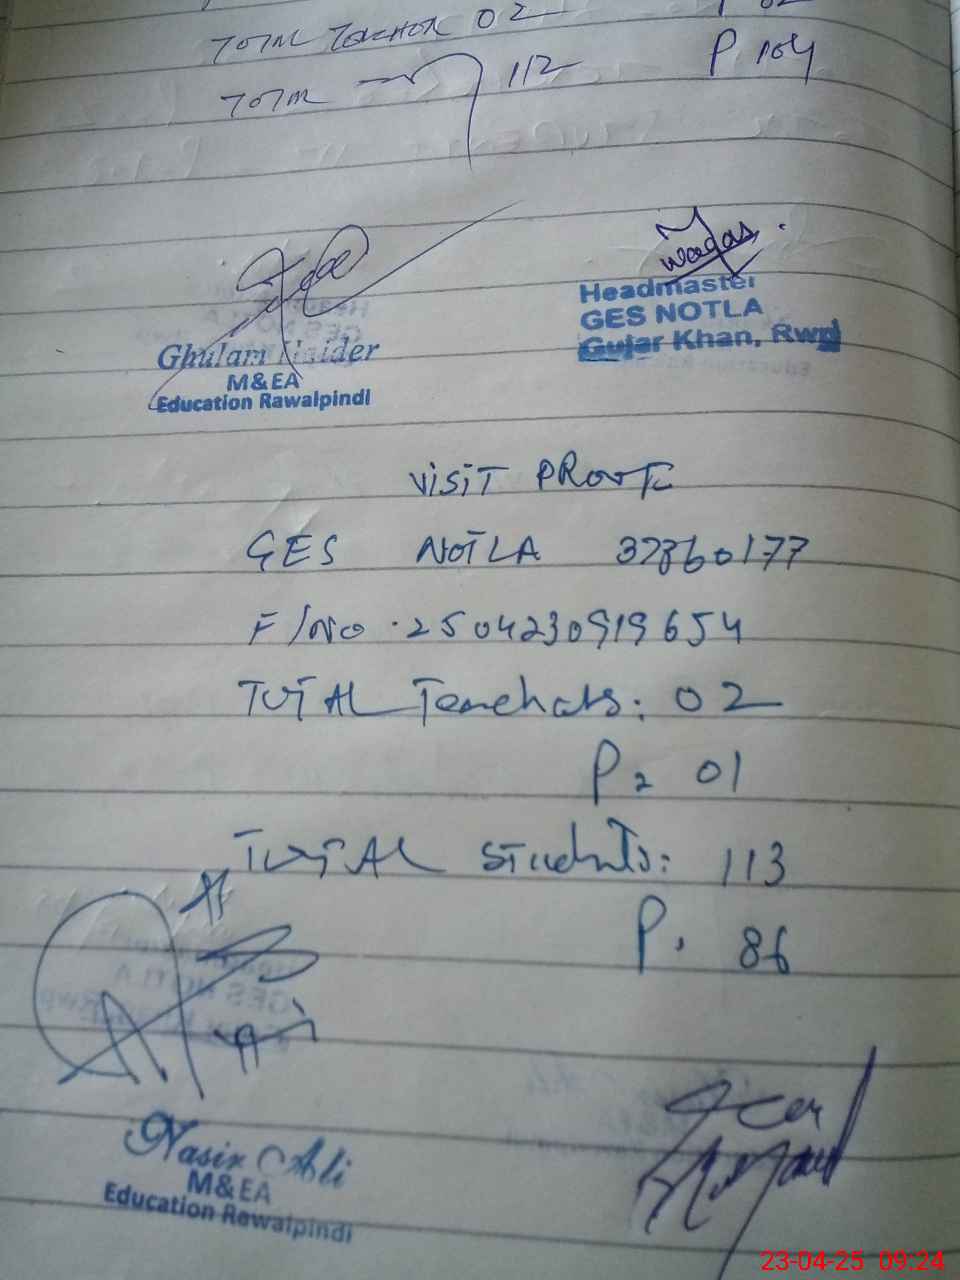 02
TOTAL TEACHOR 02
TOTAL 112 P 104
waqas
Headmaster
GES NOTLA
Gujar Khan, Rwp
Ghulam Haider
M&EA
Education Rawalpindi
VISIT PROOF
GES NOTLA 37360177
F/NO .2504230919654
TOTAL Teachers: 02
P = 01
TOTAL Students: 113
P. 86
Nasir Ali
M&EA
Education Rawalpindi
23-04-25 09:24